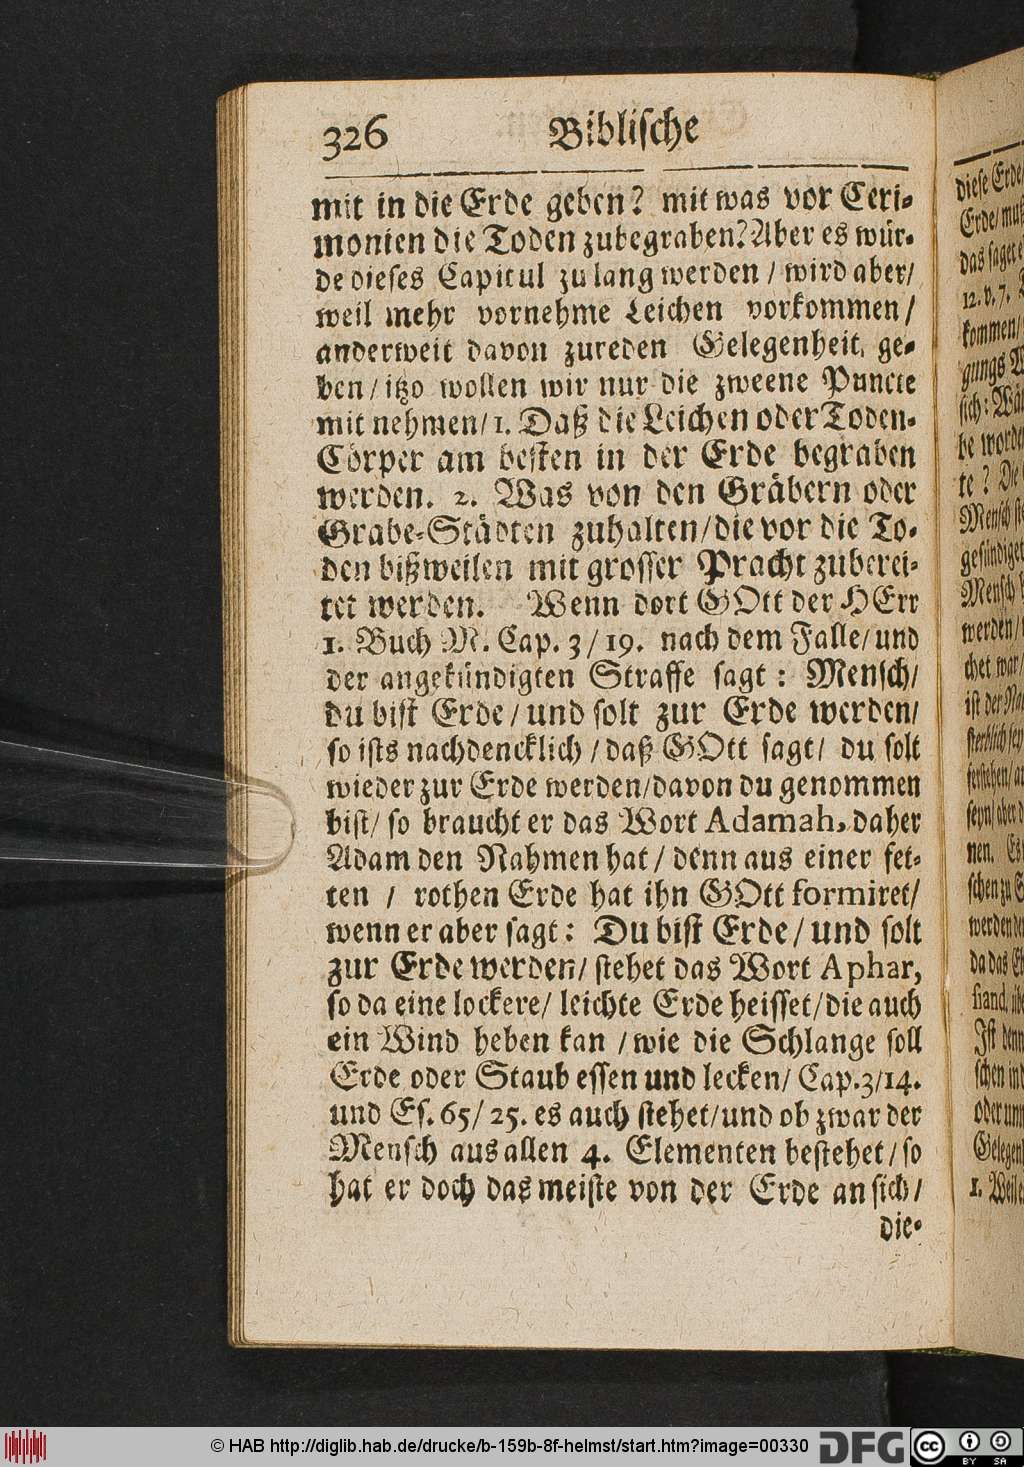 326 Biblische
mit in die Erde geben? mit was vor Ceri-
monien die Toden zubegraben? Aber es wür-
de dieses Capitul zu lang werden / wird aber/
weil mehr vornehme Leichen vorkommen /
anderweit davon zureden Gelegenheit ge-
ben / itzo wollen wir nur die zweene Puncte
mit nehmen / 1. Daß die Leichen oder Toden-
Cörper am besten in der Erde begraben
werden. 2. Was von den Gräbern oder
Grabe-Städten zuhalten/die vor die To-
den bißweilen mit grosser Pracht zuberei-
tet werden. Wenn dort GOtt der HErr
1. Buch M. Cap. 3 / 19. nach dem Falle/ und
der angekündigten Straffe sagt : Mensch/
du bist Erde / und solt zur Erde werden/
so ists nachdencklich / daß GOtt sagt/ du solt
wieder zur Erde werden/davon du genommen
bist/ so braucht er das Wort Adamah, daher
Adam den Nahmen hat / denn aus einer fet-
ten / rothen Erde hat ihn GOtt formiret/
wenn er aber sagt : Du bist Erde / und solt
zur Erde werden/ stehet das Wort Aphar,
so da eine lockere/ leichte Erde heisset/die auch
ein Wind heben kan / wie die Schlange soll
Erde oder Staub essen und lecken/ Cap.3/14.
und Es. 65/ 25. es auch stehet/und ob zwar der
Mensch aus allen 4. Elementen bestehet / so
hat er doch das meiste von der Erde an sich /
die-
diese Erde
das saget
12. v. 7.
kommen/
gungs
sich: Wä
te ? Die
Mensch
gesündiget
Mensch
werden/
chet war/
ist der
nen. Es
schen zu
werden
da das
Ist denn
schen in
oder
Gelegen
1. Weile
© HAB http://diglib.hab.de/drucke/b-159b-8f-helmst/start.htm?image=00330 DFG cc BY SA